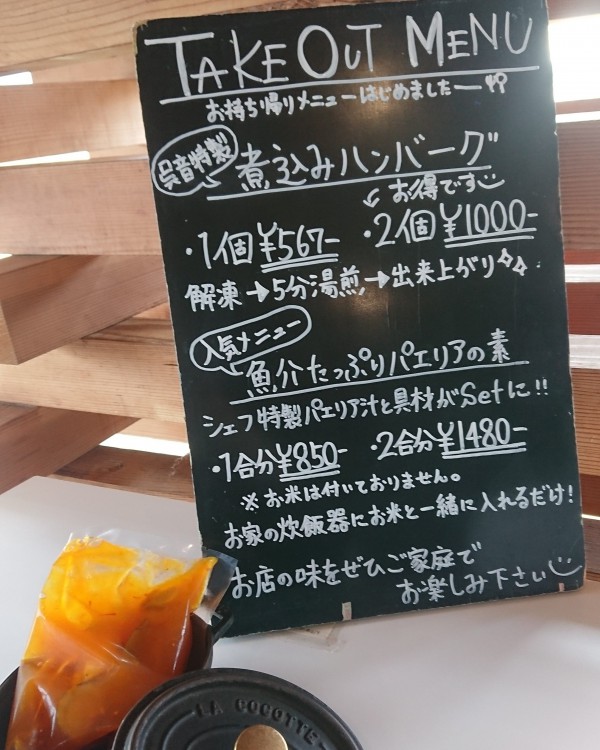 TAKE OUT MENU
お持ち帰りメニューはじめました
呉音特製
煮込みハンバーグ
お得です
・1個¥567- ・2個¥1000-
解凍→5分湯煎→出来上がり
人気メニュー
魚介たっぷりパエリアの素
シェフ特製パエリア汁と具材がSetに!!
・1合分¥850- ・2合分¥1480-
※お米は付いておりません。
お家の炊飯器にお米と一緒に入れるだけ!
お店の味をぜひご家庭で
お楽しみ下さい
LA COCOTTE